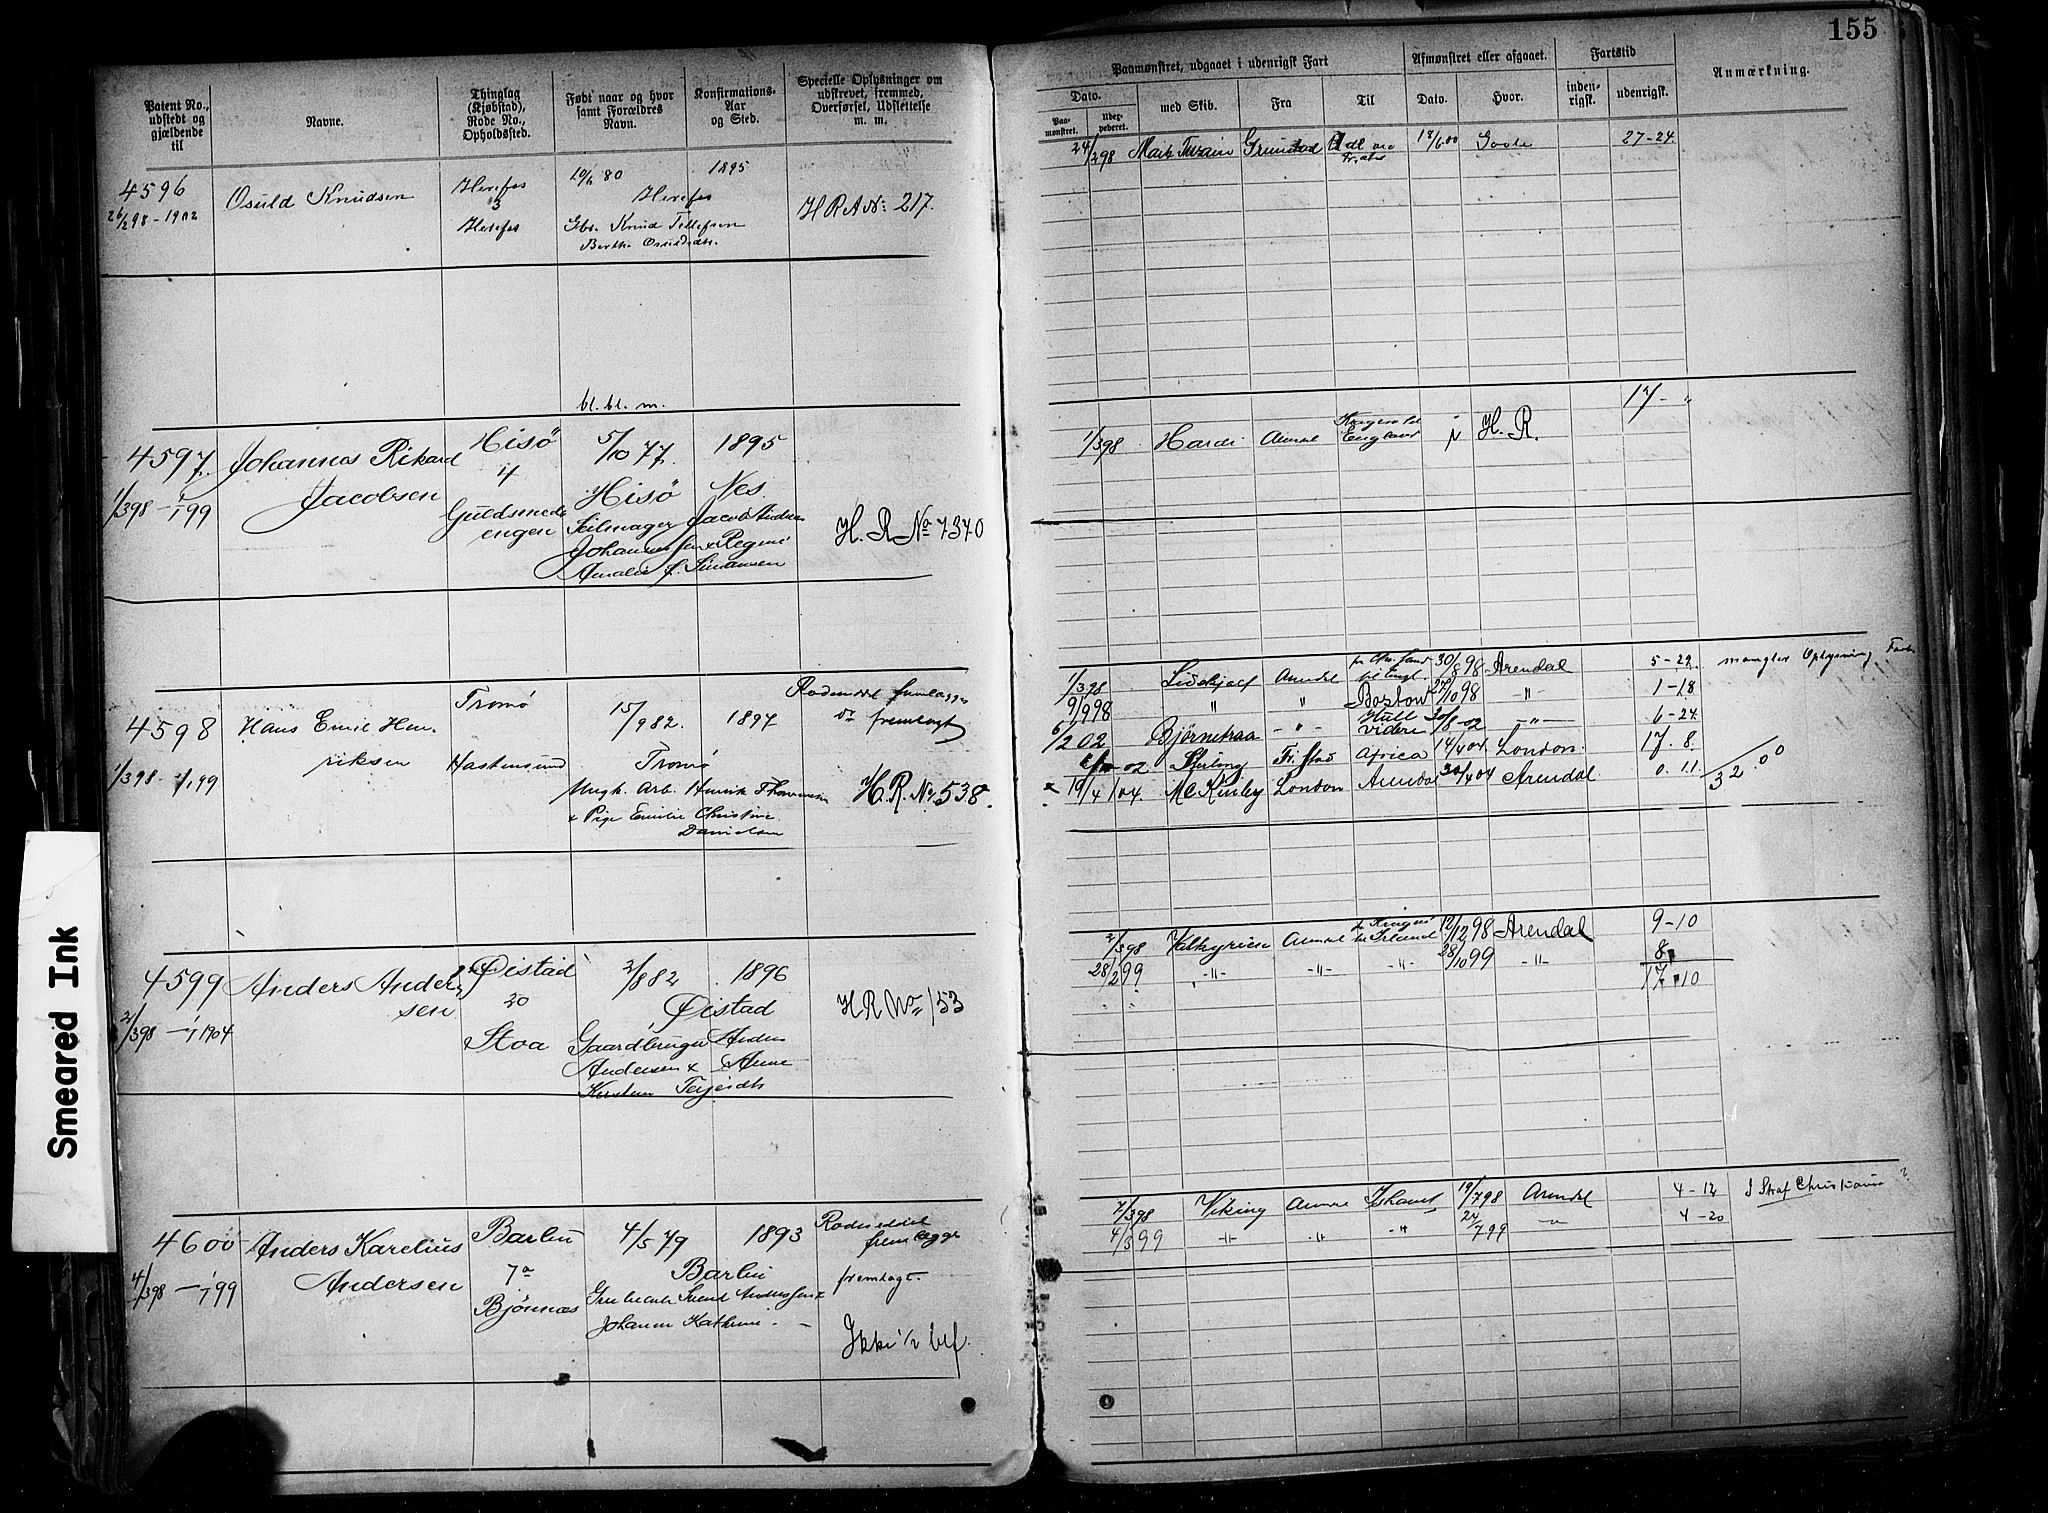 155
Patent No., udstedt og gjældende til
Navne.
Thinglag (Kjøbstad), Rode No., Opholdssted.
Født naar og hvor samt Forældres Navn.
Konfirmations-Aar og Sted.
Specielle Oplysninger om udskrevet, fremmed, Overførsel, Udslettelse m. m.
Paamønstret, udgaaet i udenrigsk Fart
Dato.
Paa-mønstret.
med Skib.
Fra
Til
Afmønstret eller afgaaet.
Dato.
Hvor.
Fartstid
inden-rigsk.
udenrigsk.
Anmærkning.
4596
26/2 98 - 1902
Osuld Knudsen
Herefos
3
Herefos
10/ 80
1895
Herefos
Gbr. Knud Tellefsen
H R A N: 217.
24/2 98 Mark Twain Grimstad 18/6 00 27-24.
bl. bl. m.
4597.
1/3 98 - 1/1 99
Johannes Rikard
Jacobsen
Hisö
4
Guldsmeds
engen
5/10 77.
1895
Hisö
Nes.
Seilmager Jacob Andreas
Johannessen & Regine
Amalie f. Simonsen
H. R No 7370
1/3 98 Hardi England i H. R. 17 - "
4598
1/3 98 - 1/1 99
Hans Emil Hen
riksen
Tromö
Hastensund
15/9 82.
1897
Tromö
Ungk. Arb. Henrik Thommesen
& Pige Emilie Christine
Danielsen
Rodeseddel fremlægges
fremlagt
H. R. No. 538.
1/3 98 Lidskjalf Arendal 30/8 98 Arendal 5-29 mangler Oplysning
9/9 98 " " Boston 10 98 " 1-18
6/2 02 Bjørnstraa - " - Hull videre 20/8-02 - " - 6-24.
02 Stirling Fr.stad Africa 14/4 04 London. 17. 8.
19/4 04. Mc Kinley London Arendal 30/4 04 Arendal. 0. 11.
32.0
4599
2/3 98 - 1/1 1904
Anders Ander
sen
Øistad
20
Stoa
2/8 82
1896
Øistad
Gaardbruger Anders
Andersen & Anne
Kirstine Terjesdtr
H R No " 153
2/3 98 Valkyrien Arendal Irland 12/12 98 Arendal 9-10
28/2 99 - " - - " - - " - 28/10 99 - " - 8
17 10
4600
4/3 98 - 1/1 99
Anders Karelius
Andersen
Barbu
7a
Bjönnæs
4/5 79
1893
Barbu
Svend Anderssen &
Johanne Kathrine -
Rodeseddel
fremlægges
fremlagt.
Ikke
7/3 98 Viking Arendal Ishavet 19/7 98 Arendal 4-12 I Straf Christiania ?
4/3 99 - " - - " - " 24/7 99 - " 4-20
Smeared Ink